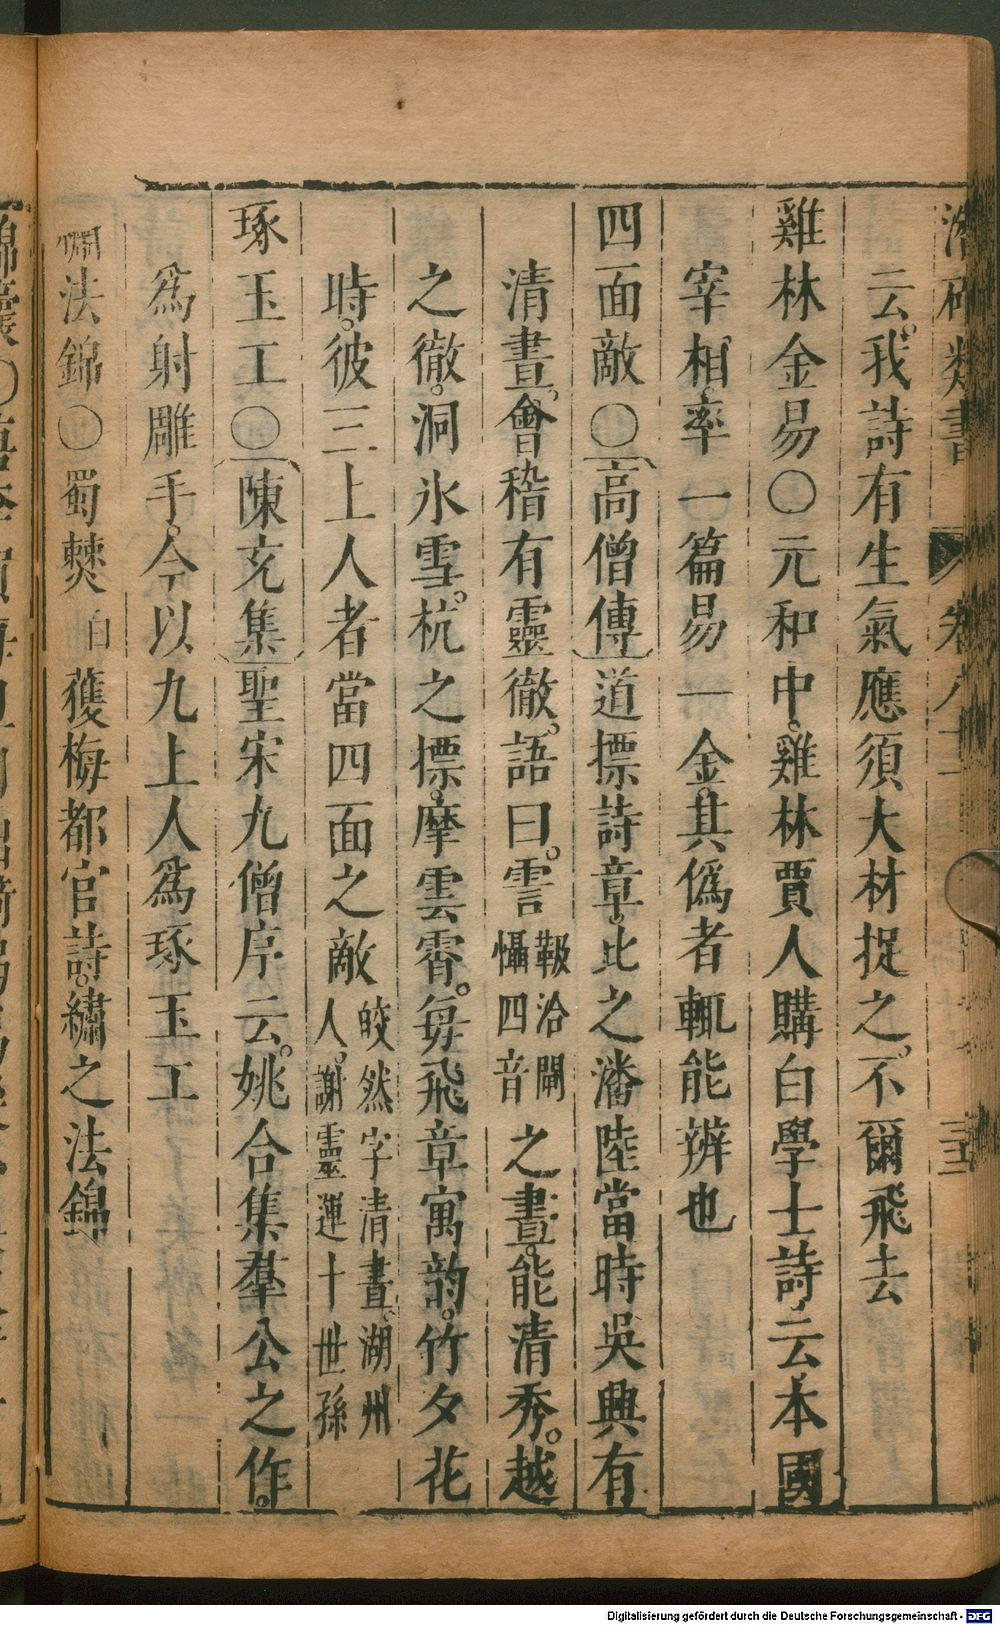 潛確類書 卷八十一 三十三
云。我詩有生氣應須大材捉之。不爾飛去
雞林金易〇元和中。雞林賈人購白學士詩。云本國
宰相率一篇易一金。其偽者輒能辨也
四面敵〇高僧傳道摽詩章。比之潘陸當時吳興有
清晝。會稽有靈徹。語曰。霅
靸洽閘
懾四音
之晝。能清秀。越
之徹。洞氷雪。杭之摽。摩雲霄。每飛章寓韵。竹夕花
時。彼三上人者當四面之敵
皎然字清晝。湖州
人。謝靈運十世孫
琢玉工〇陳充集聖宋九僧序云。姚合集羣公之作。
為射雕手。今以九上人為琢玉工
法錦〇蜀僰
獲梅都官詩。繡之法錦
錦囊〇
Digitalisierung gefördert durch die Deutsche Forschungsgemeinschaft - DFG